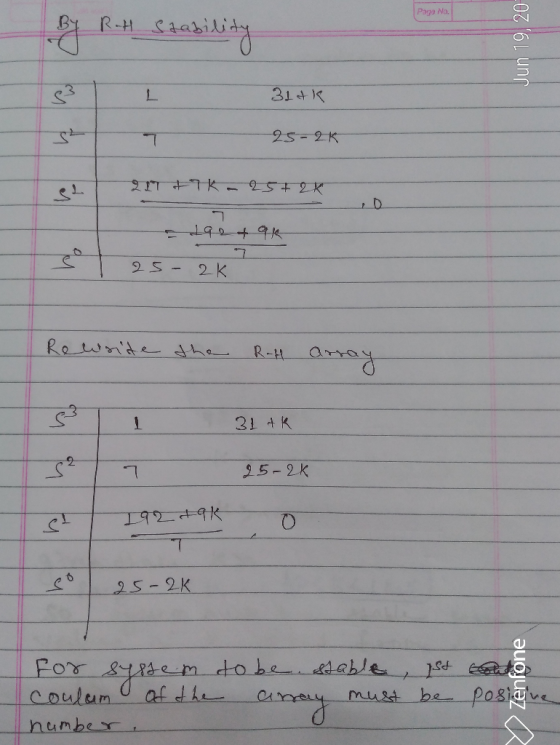 Page No.
Jun 19, 20
By R-H Stability
S³ 1 31+K
S² 7 25-2K
S¹ 217 +7K - 25+2K / 7 , 0
= 192 + 9K / 7
S⁰ 25 - 2K
Rewrite the R-H array
S³ 1 31 +K
S² 7 25-2K
S¹ 192 +9K / 7 , 0
S⁰ 25-2K
For system to be stable, 1st
coulam of the array must be positive
number.
Zenfone